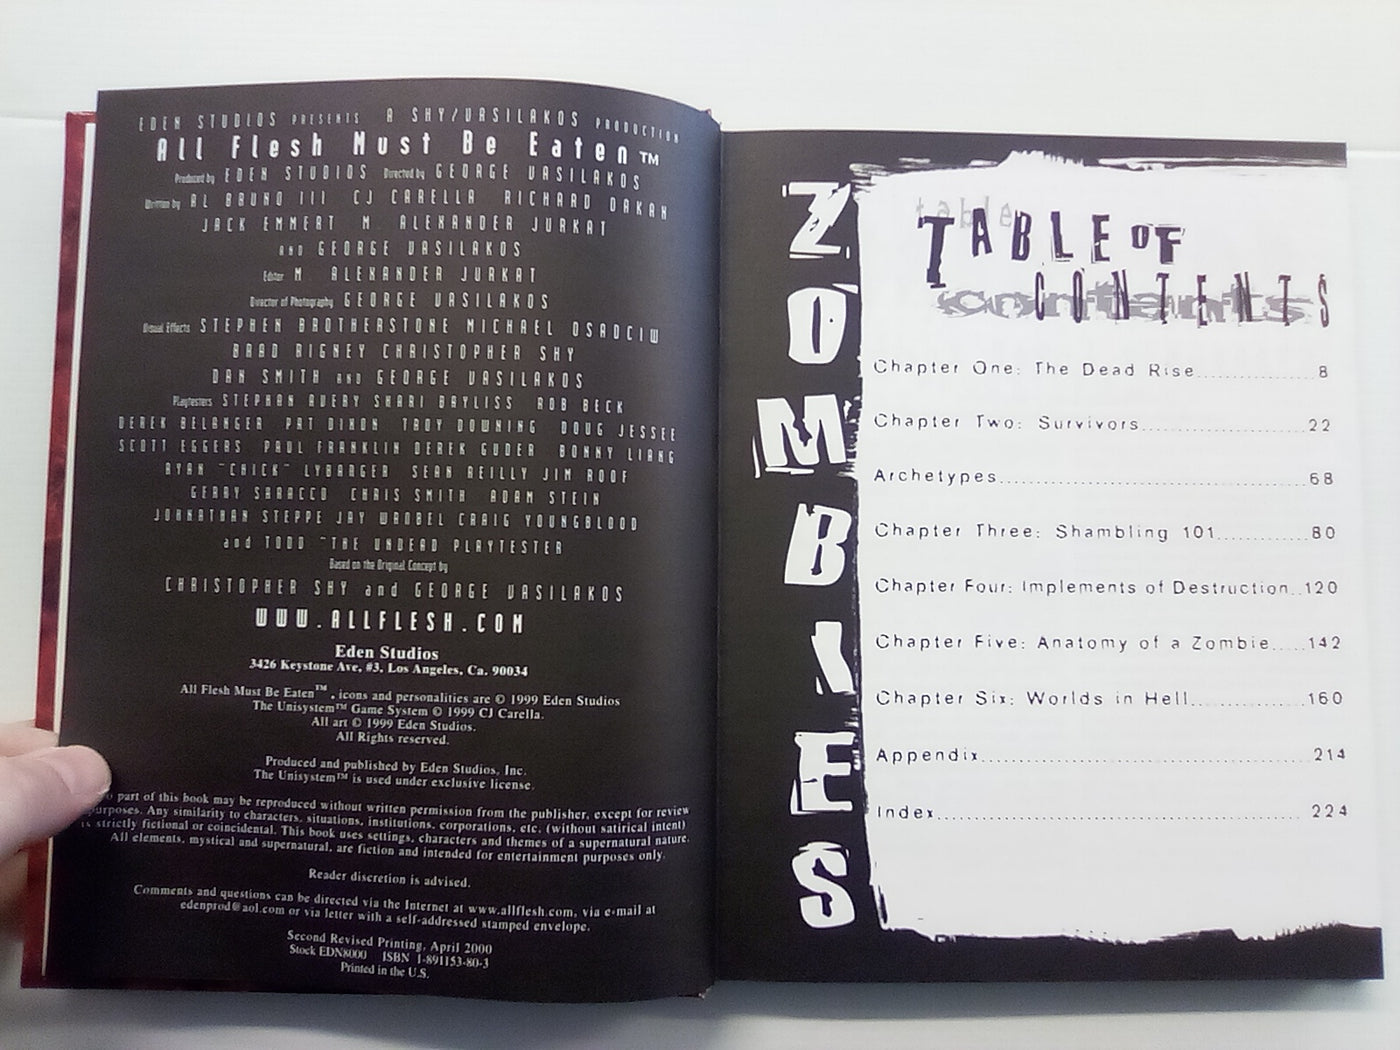 EDEN STUDIOS PRESENTS A SHY/VASILAKOS PRODUCTION
All Flesh Must Be Eaten™
Produced by EDEN STUDIOS Directed by GEORGE VASILAKOS
Written by AL BRUNO III CJ CARELLA RICHARD DAKAN
JACK EMMERT M. ALEXANDER JURKAT
AND GEORGE VASILAKOS
Editor M. ALEXANDER JURKAT
Director of Photography GEORGE VASILAKOS
Visual Effects STEPHEN BROTHERSTONE MICHAEL OSADCIW
BRAD RIGNEY CHRISTOPHER SHY
DAN SMITH AND GEORGE VASILAKOS
Playtesters STEPHAN AVERY SHARI BAYLISS ROB BECK
DEREK BELANGER PAT DIXON TROY DOWNING DOUG JESSEE
SCOTT EGGERS PAUL FRANKLIN DEREK GUDER BONNY LIANG
RYAN "CHICK" LYBARGER SEAN REILLY JIM ROOF
GERRY SARACCO CHRIS SMITH ADAM STEIN
JOHNATHAN STEPPE JAY WROBEL CRAIG YOUNGBLOOD
and TODD "THE UNDEAD PLAYTESTER
Based on the Original Concept by
CHRISTOPHER SHY and GEORGE VASILAKOS
WWW.ALLFLESH.COM
Eden Studios
3426 Keystone Ave, #3. Los Angeles, Ca. 90034
All Flesh Must Be Eaten™, icons and personalities are © 1999 Eden Studios
The Unisystem™ Game System © 1999 CJ Carella.
All art © 1999 Eden Studios.
All Rights reserved.
Produced and published by Eden Studios, Inc.
The Unisystem™ is used under exclusive license.
o part of this book may be reproduced without written permission from the publisher, except for review
purposes. Any similarity to characters, situations, institutions, corporations, etc. (without satirical intent)
is strictly fictional or coincidental. This book uses settings, characters and themes of a supernatural nature.
All elements, mystical and supernatural, are fiction and intended for entertainment purposes only.
Reader discretion is advised.
Comments and questions can be directed via the Internet at www.allflesh.com, via e-mail at
edenprod@aol.com or via letter with a self-addressed stamped envelope.
Second Revised Printing, April 2000
Stock EDN8000 ISBN 1-891153-80-3
Printed in the U.S.
ZOMBIES
table
TABLE OF
contents
CONTENTS
Chapter One: The Dead Rise..............................8
Chapter Two: Survivors..............................22
Archetypes..............................68
Chapter Three: Shambling 101..............80
Chapter Four: Implements of Destruction..120
Chapter Five: Anatomy of a Zombie.....142
Chapter Six: Worlds in Hell..................160
Appendix..............................214
Index..............................224